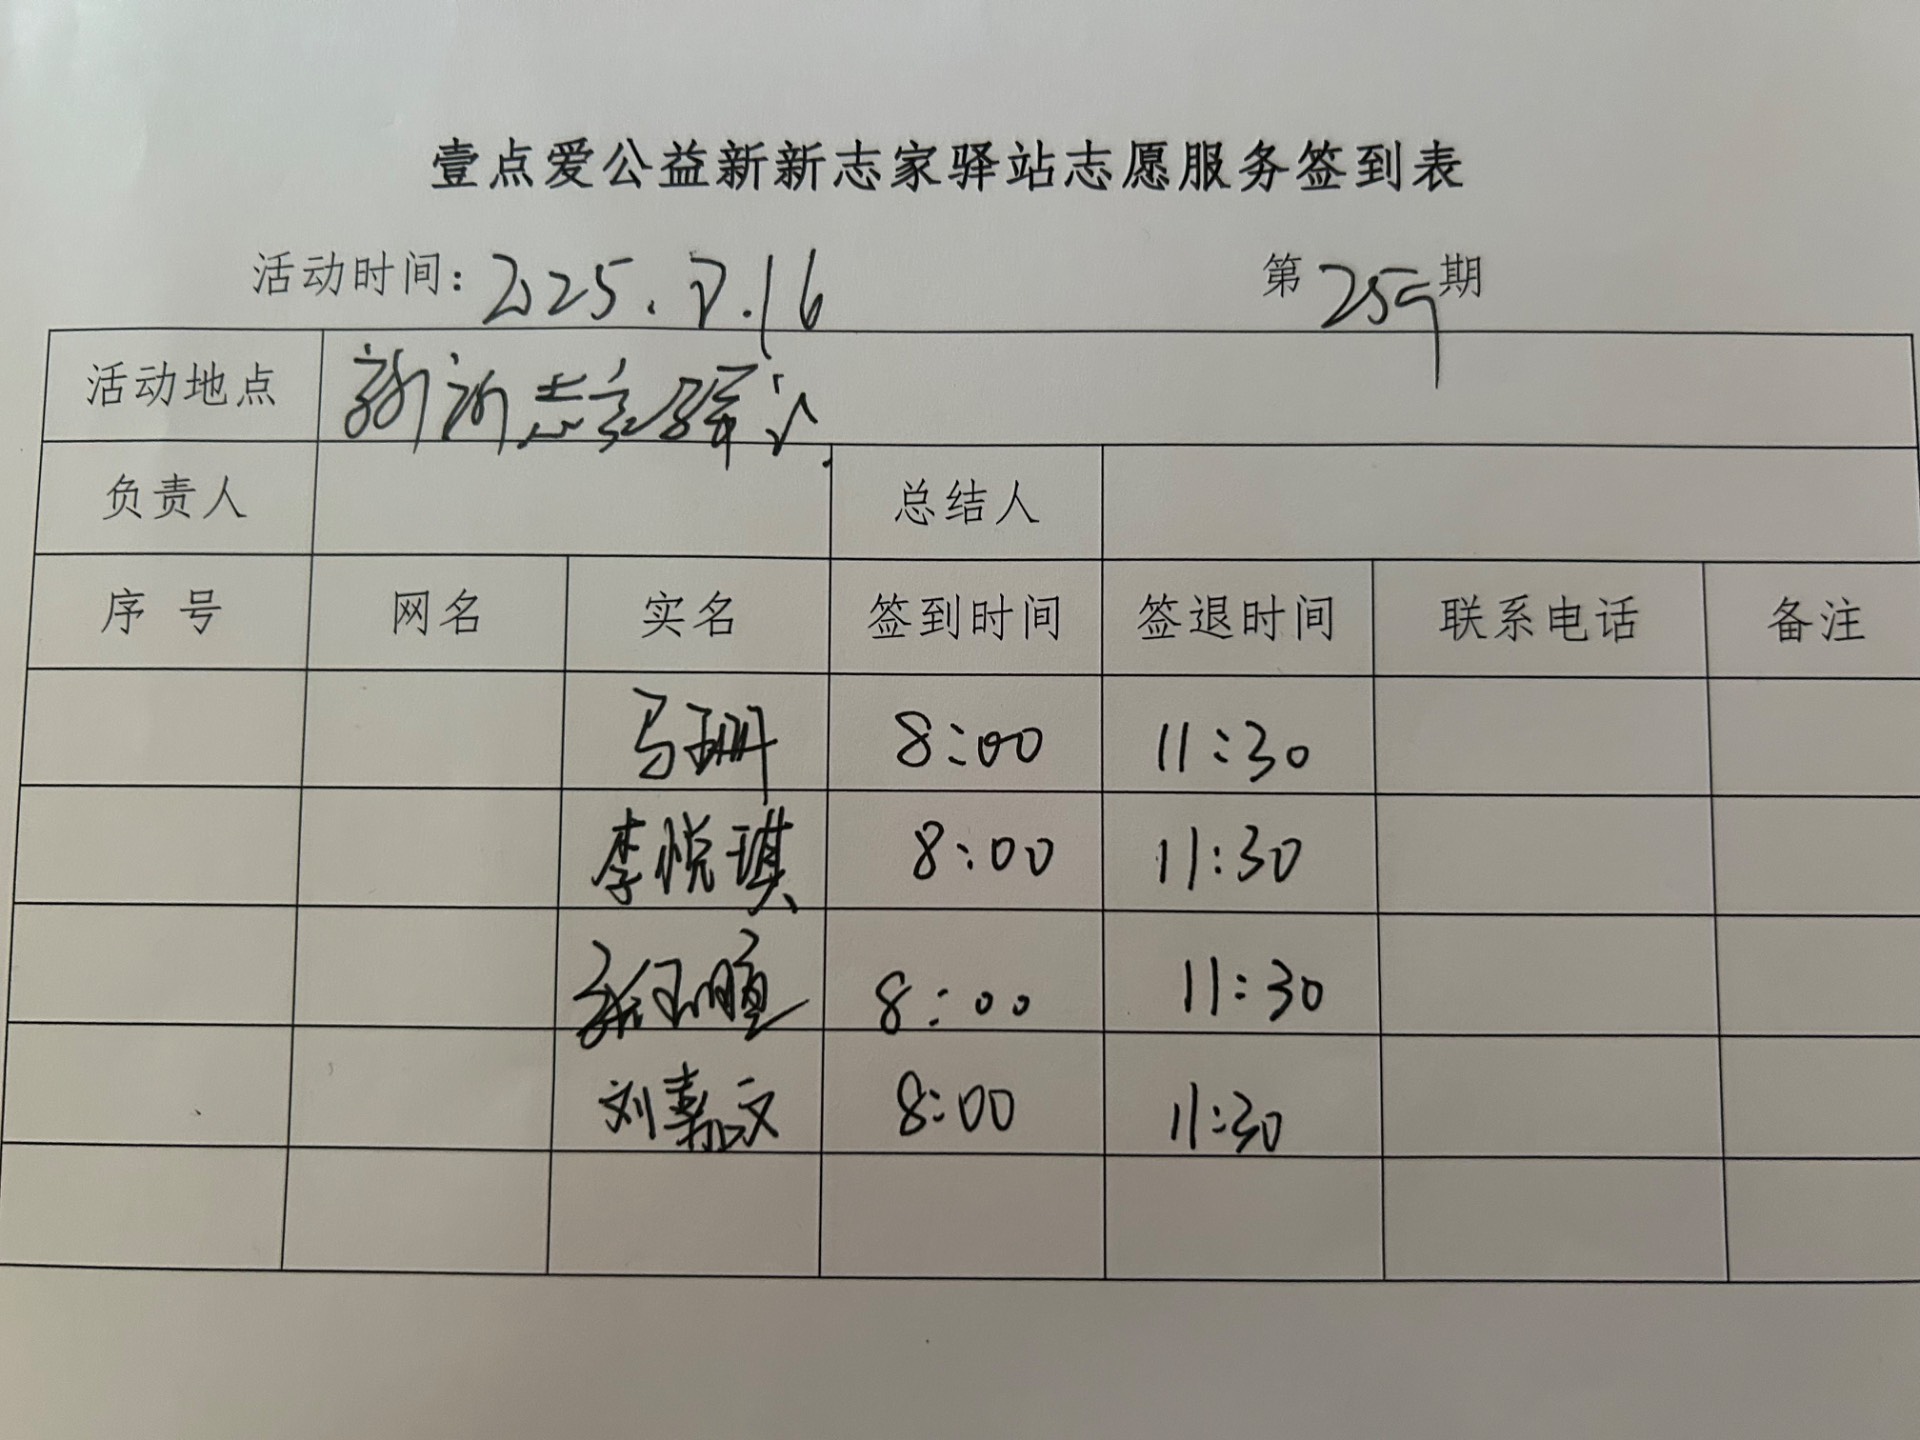 壹点爱公益新新志家驿站志愿服务签到表
活动时间：2025.7.16 第259期
活动地点 新新志家驿站
负责人 总结人
序号 网名 实名 签到时间 签退时间 联系电话 备注
马珊 8:00 11:30
李悦琪 8:00 11:30
8:00 11:30
刘嘉文 8:00 11:30